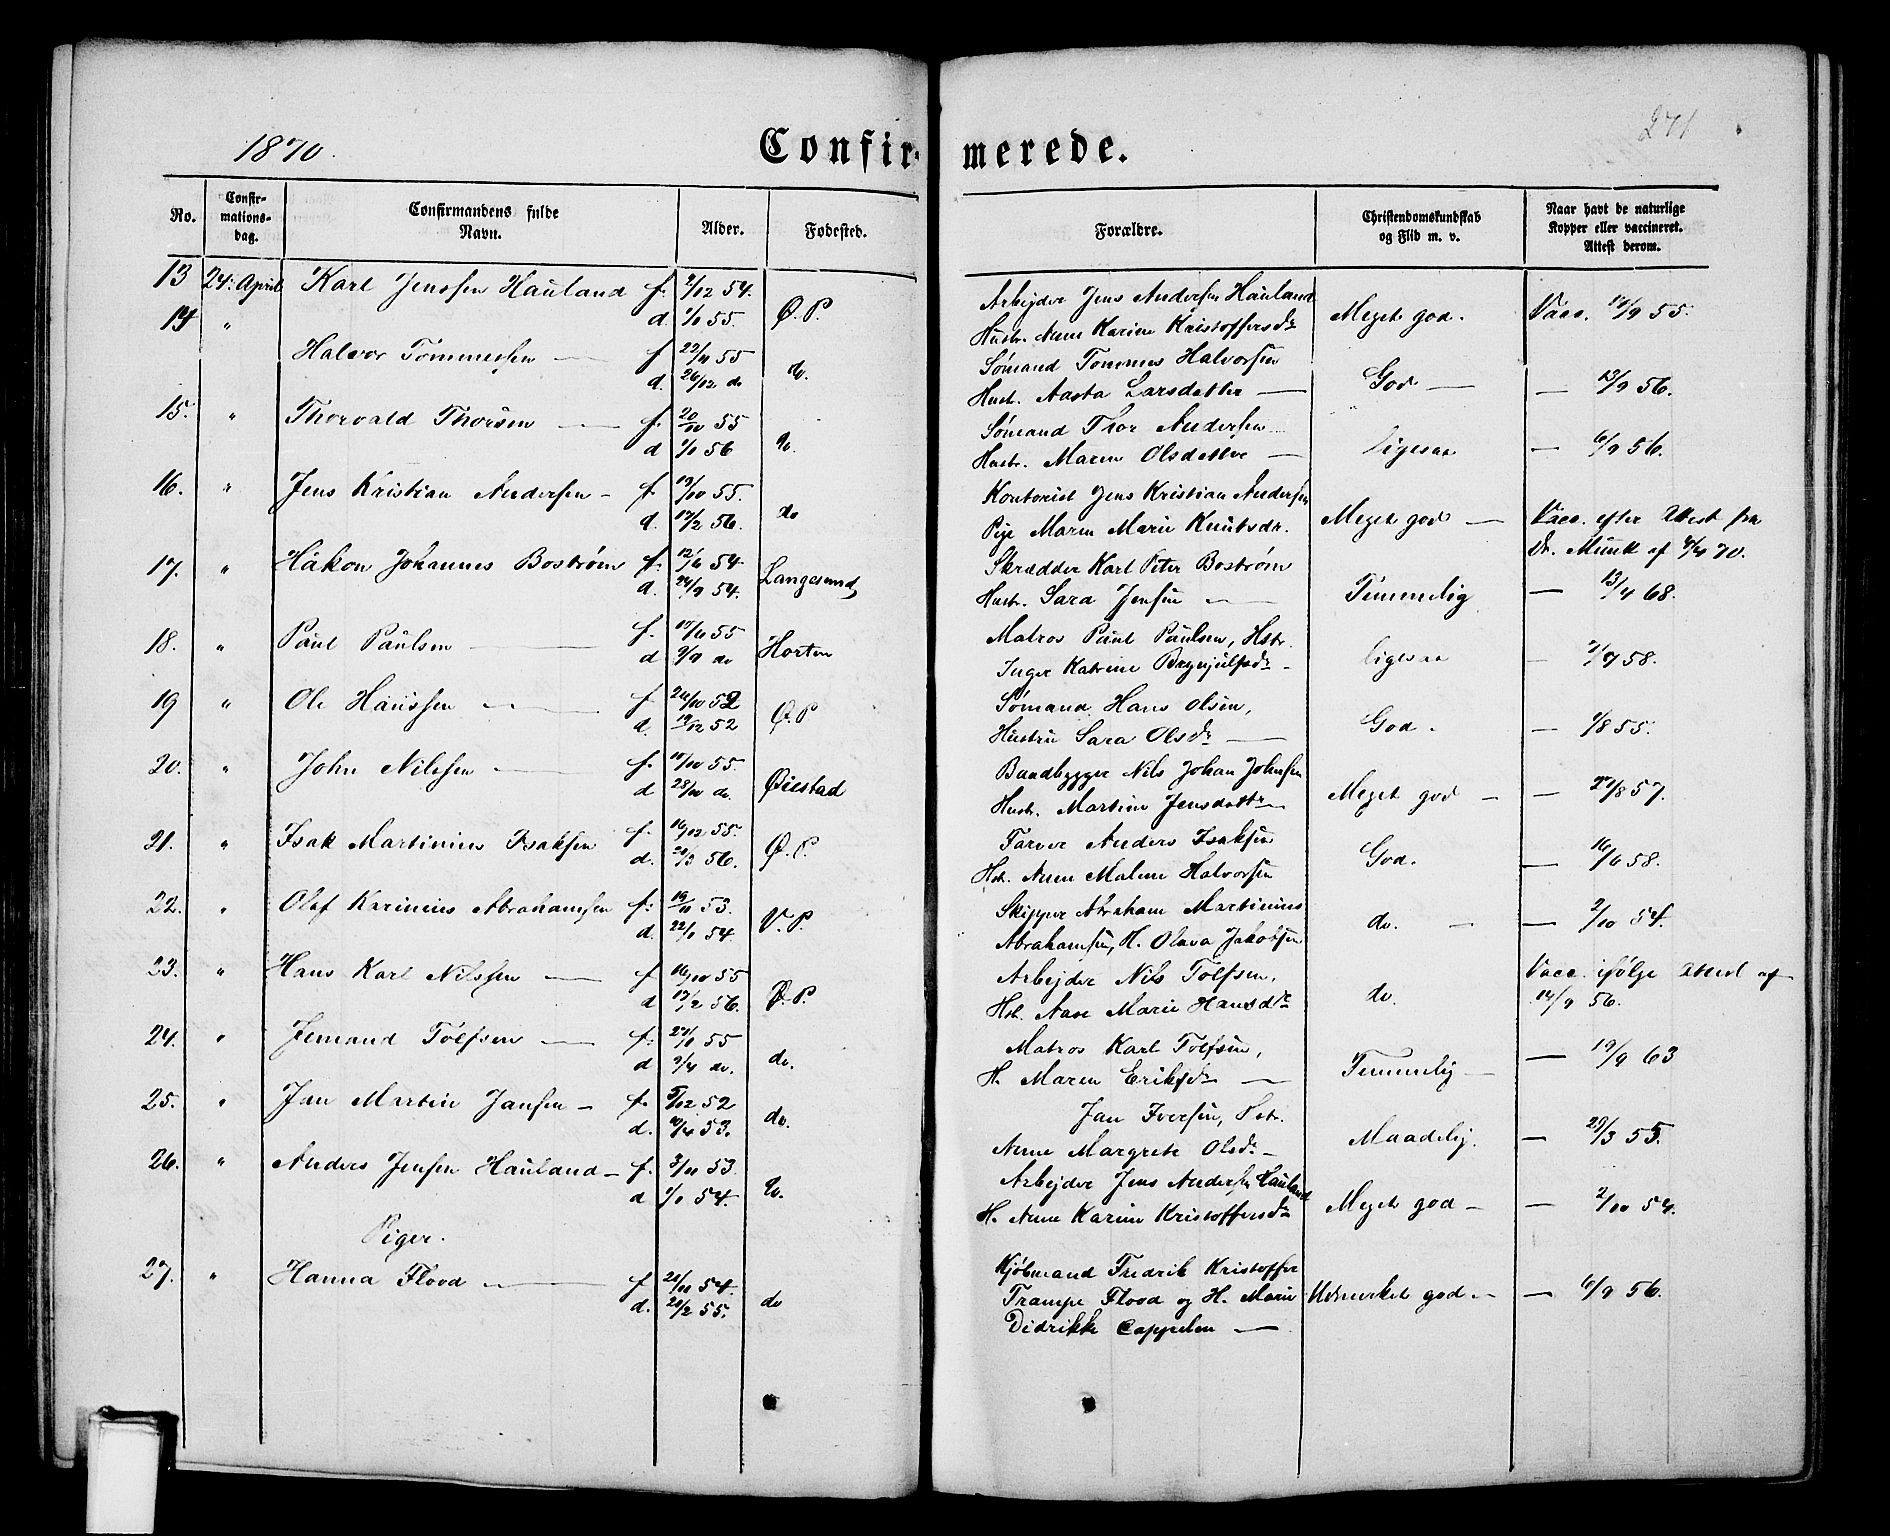 1870.
Confirmerede.
271
No.
Confirmations-dag.
Confirmandens fulde Navn.
Alder.
Fødested.
Forældre.
Christendomskundskab og Flid m. v.
Naar havt de naturlige Kopper eller vaccineret. Attest derom.
13 24: April Karl Jenssen Hauland f. 9/12 54. Arbejder Jens Andersen Hauland Meget god. Vacc. 19/9 55.
14 " d. 1/1 55. Ø. P. Hustr. Anne Karine Kristoffersdr
Halvor Tommesen f. 22/11 55 Sømand Tommes Halvorsen
d. 26/12 do do. Hustr. Aasta Larsdatter — God — — 13/9 56.
15. " Thorvald Thorsen f. 20/10 55 Sømand Thor Andersen
d 1/1 56 do. Hustr. Maren Olsdatter — ligesaa — 6/9 56.
16. " Jens Kristian Andersen - f. 19/10 55. Kontorist Jens Kristian Andersen
d. 17/2 56. do Pige Maren Marie Knutsdr. Meget god — Vacc. efter Attest fra
17. " Håkon Johannes Bostrøm f. 12/6 54 Skrædder Karl Peter Bostrøm Dr. Munk af 4/4 70.
d. 24/9 54. Langesund Hustr. Sara Jensen — Temmelig — 13/4 68.
18. " Paul Paulsen f. 55 Matros Paul Paulsen, Hstr.
d 9/9 do Horten Inger Katrine Brynjulfsdr - ligesaa — 58.
19 " Ole Hanssen f 52 Sømand Hans Olsen,
d. 19/12 52 Ø. P Hustru Sara Olsdr — God. — 1/8 55.
20. " John Nilssen f. 55. Baadbygger Nils Johan Johnsen
d 28/10 do. Øiestad Hustr. Martine Jensdattr Meget god — — 27/8 57.
21. " Isak Martinius Isaksen f. 16/12 55. Farver Anders Isaksen
d. 56. Ø. P. Hst. Anne Malene Halvorsen God. — 16/6 58.
22. " Olaf Karinius Abrahamsen f: 19/11 53. Skipper Abraham Martinius
d. 22/1 54. V. P. Abrahamsen, H. Olava Jakobsen do. — — 2/10 54.
23. " Hans Karl Nilssen f 16/10 55 Arbejder Nils Tolfsen, Vacc. ifølge Attest af
d 17/2 56. Ø. P. Hst. Aase Marie Hansdtr do. 14/9 56.
24. " Jemand Tolfsen f. 27/1 55 Matros Karl Tolfsen,
d 9/4 do. do. H. Maren Eriksdr — Temmelig — — 19/9 63
25. " Jan Martin Jansen - f. 5/12 52 Jan Iversen, Hstr.
d. 53. do. Anne Margrete Olsdr - Maadelig. — 29/3 55.
26. " Anders Jensen Hauland - f. 3/11 53. Arbejder Jens Andersen Hauland
d 1/1 54. do. H. Anne Karine Kristoffersdr Meget god - — 2/10 54.
Piger.
27. " Hanna Flood f 54. Kjøbmand Fredrik Kristoffer
d. 20/2 55. do Trampe Flood og H. Marie Udmerket god. - — 6/9 56.
Didrikke Cappelen —